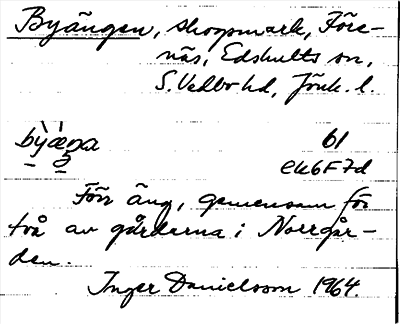 Byängen, skogsmark, Före-
näs, Edshults sn,
S. Vedbo hd, Jönk. l.
byæŋa 61
ek6F7d
Förr äng, gemensam för
två av gårdarna i Norrgår-
den.
Inger Danielsson 1964.